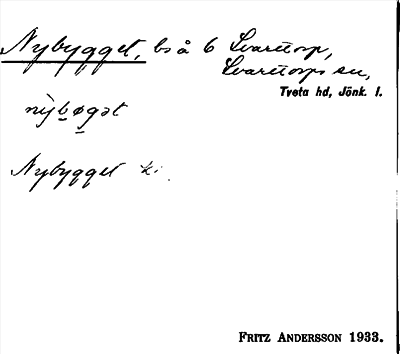 Nybygget, bs å 6 Svarttorp,
Svarttorps sn,
Tveta hd, Jönk. l.
nỳbøgət
Nybygget
FRITZ ANDERSSON 1933.